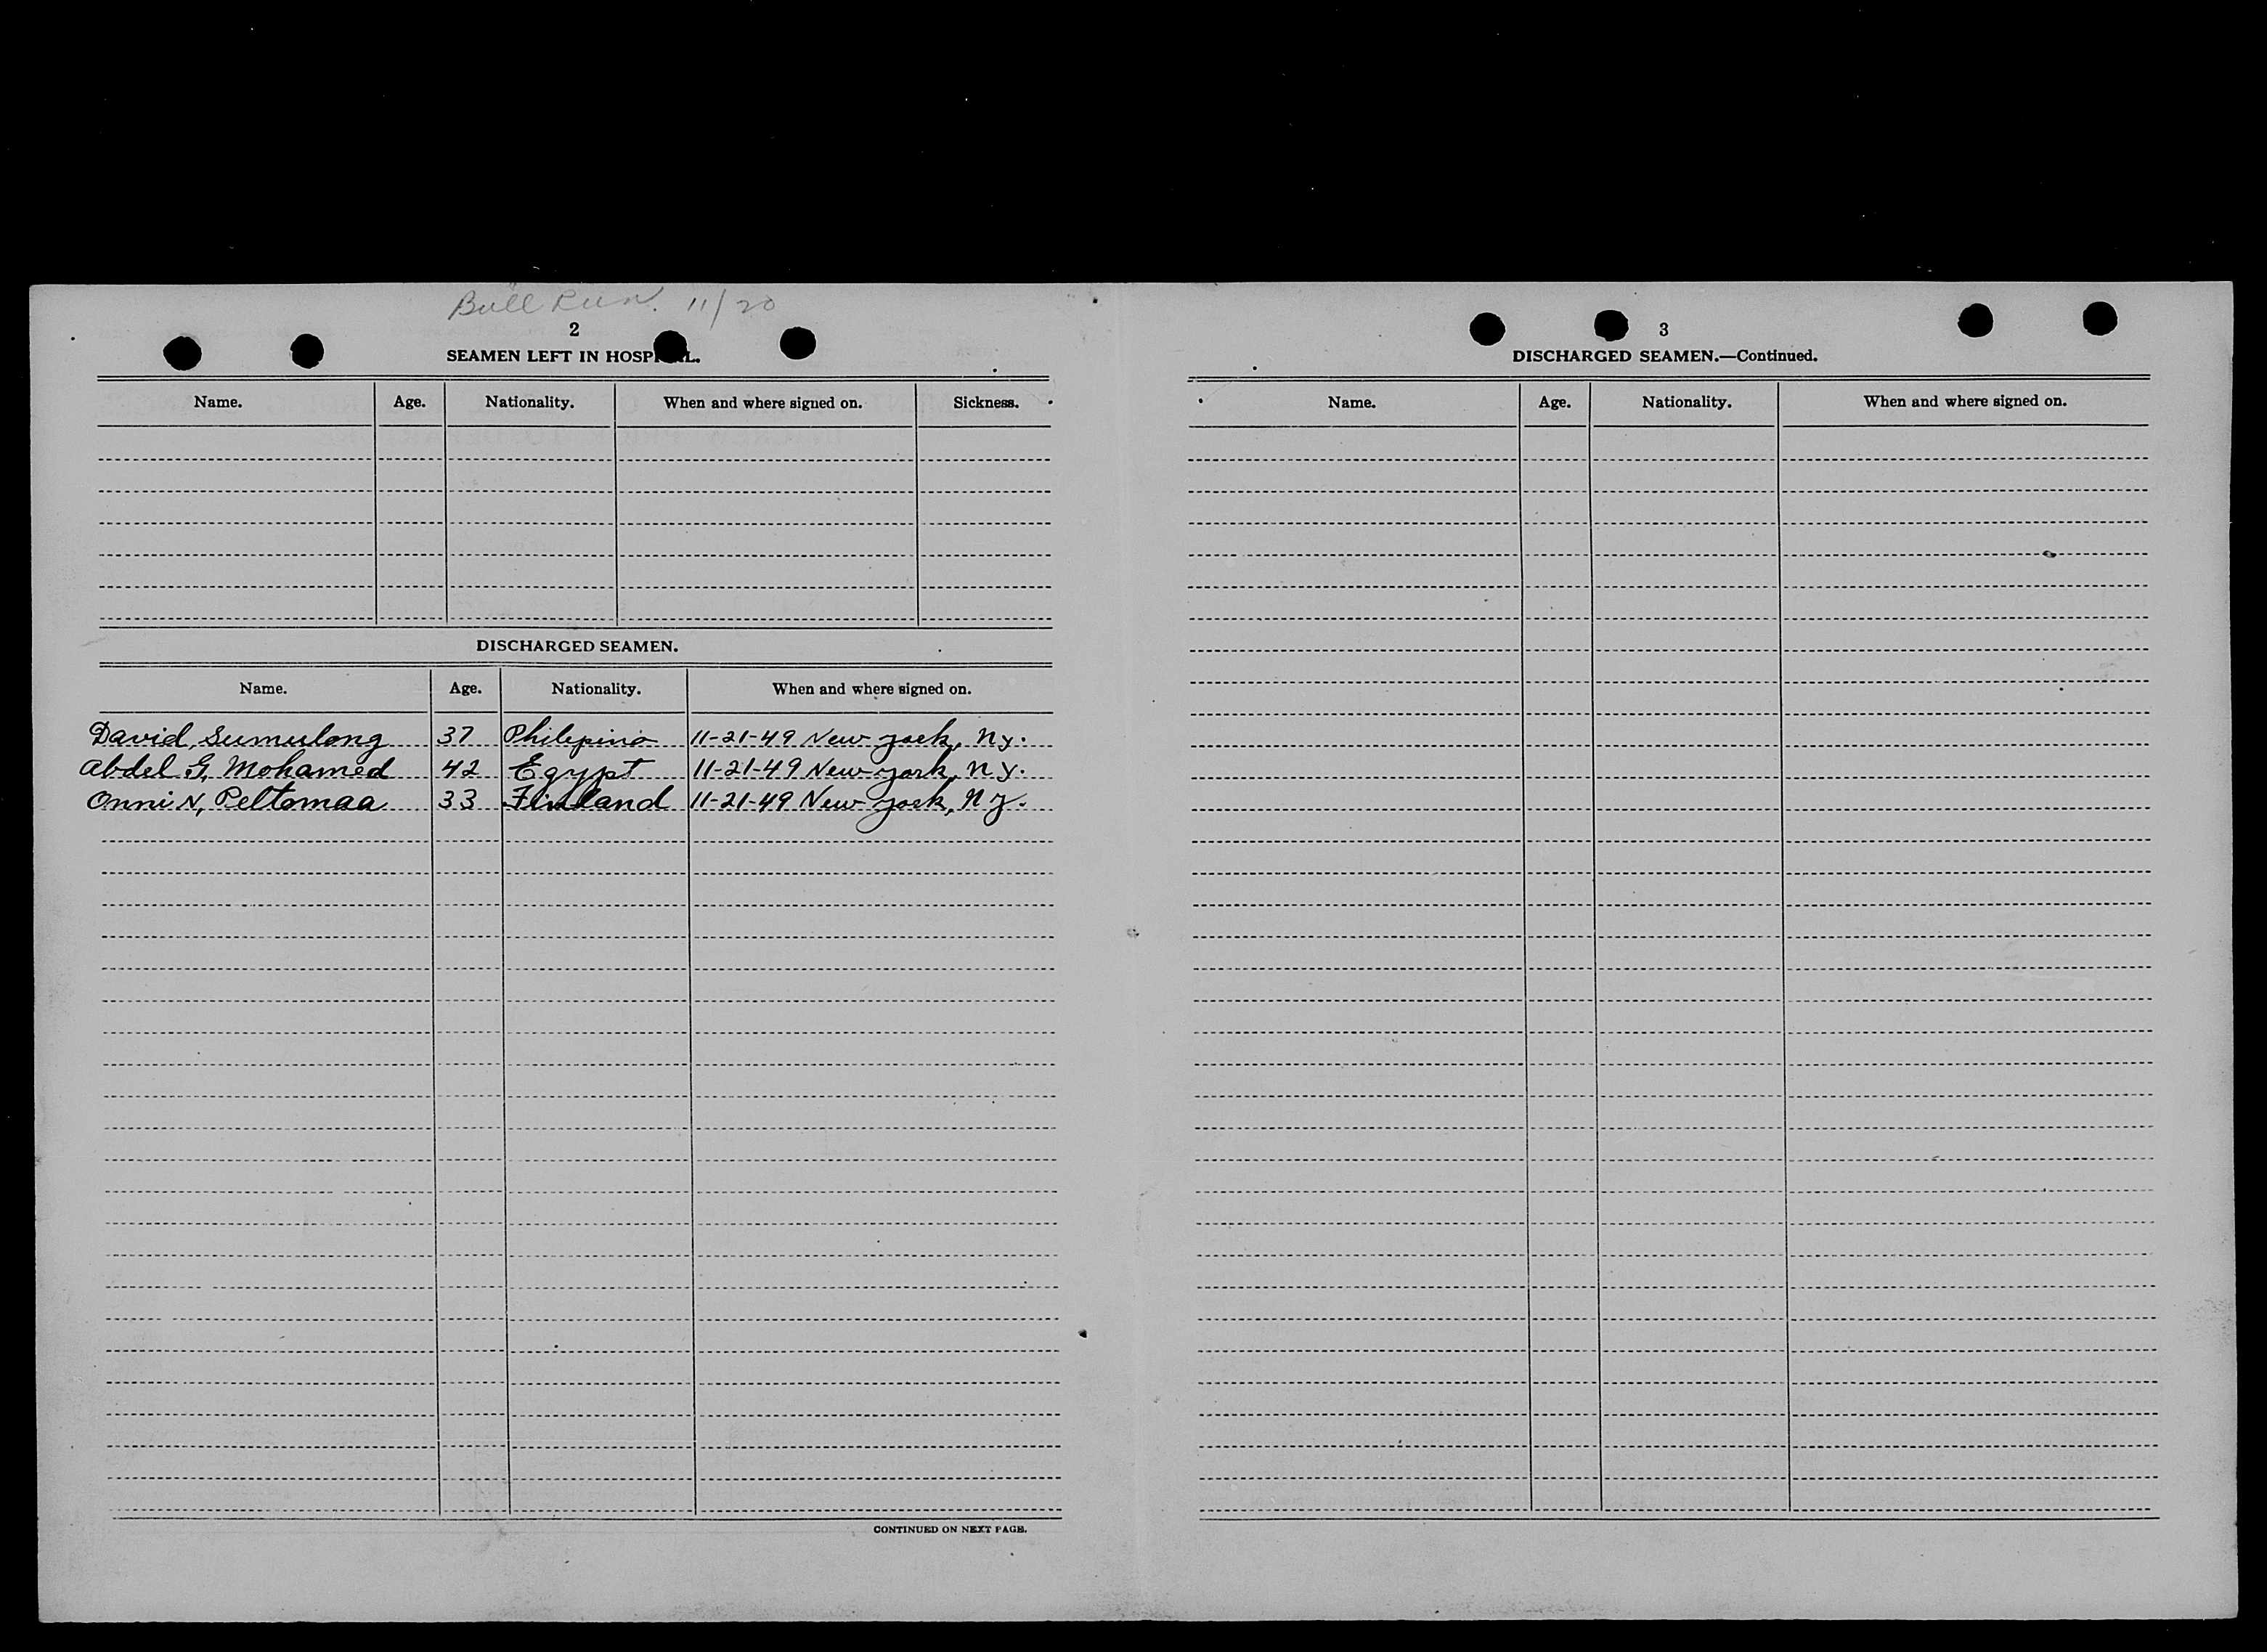 Bull Run. 11/20
2
SEAMEN LEFT IN HOSPITAL.
Name. Age. Nationality. When and where signed on. Sickness.
DISCHARGED SEAMEN.
Name. Age. Nationality. When and where signed on.
David Sumulong 37 Philipino 11-21-49 New York, Ny.
Abdel G, Mohamed 42 Egypt 11-21-49 New York, Ny.
Onni N, Peltomaa 33 Finland 11-21-49 New York, Ny.
CONTINUED ON NEXT PAGE.
3
DISCHARGED SEAMEN.—Continued.
Name. Age. Nationality. When and where signed on.